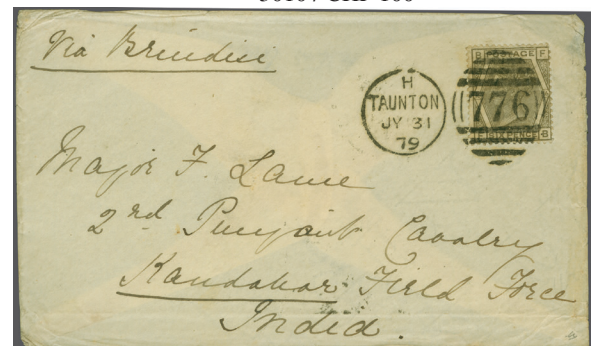 Via Brindisi
H
TAUNTON
JY 31
79
776
B POSTAGE F
F SIX PENCE B
Major F. Lance
2nd Punjaub Cavalry
Kandahar Field Force
India.